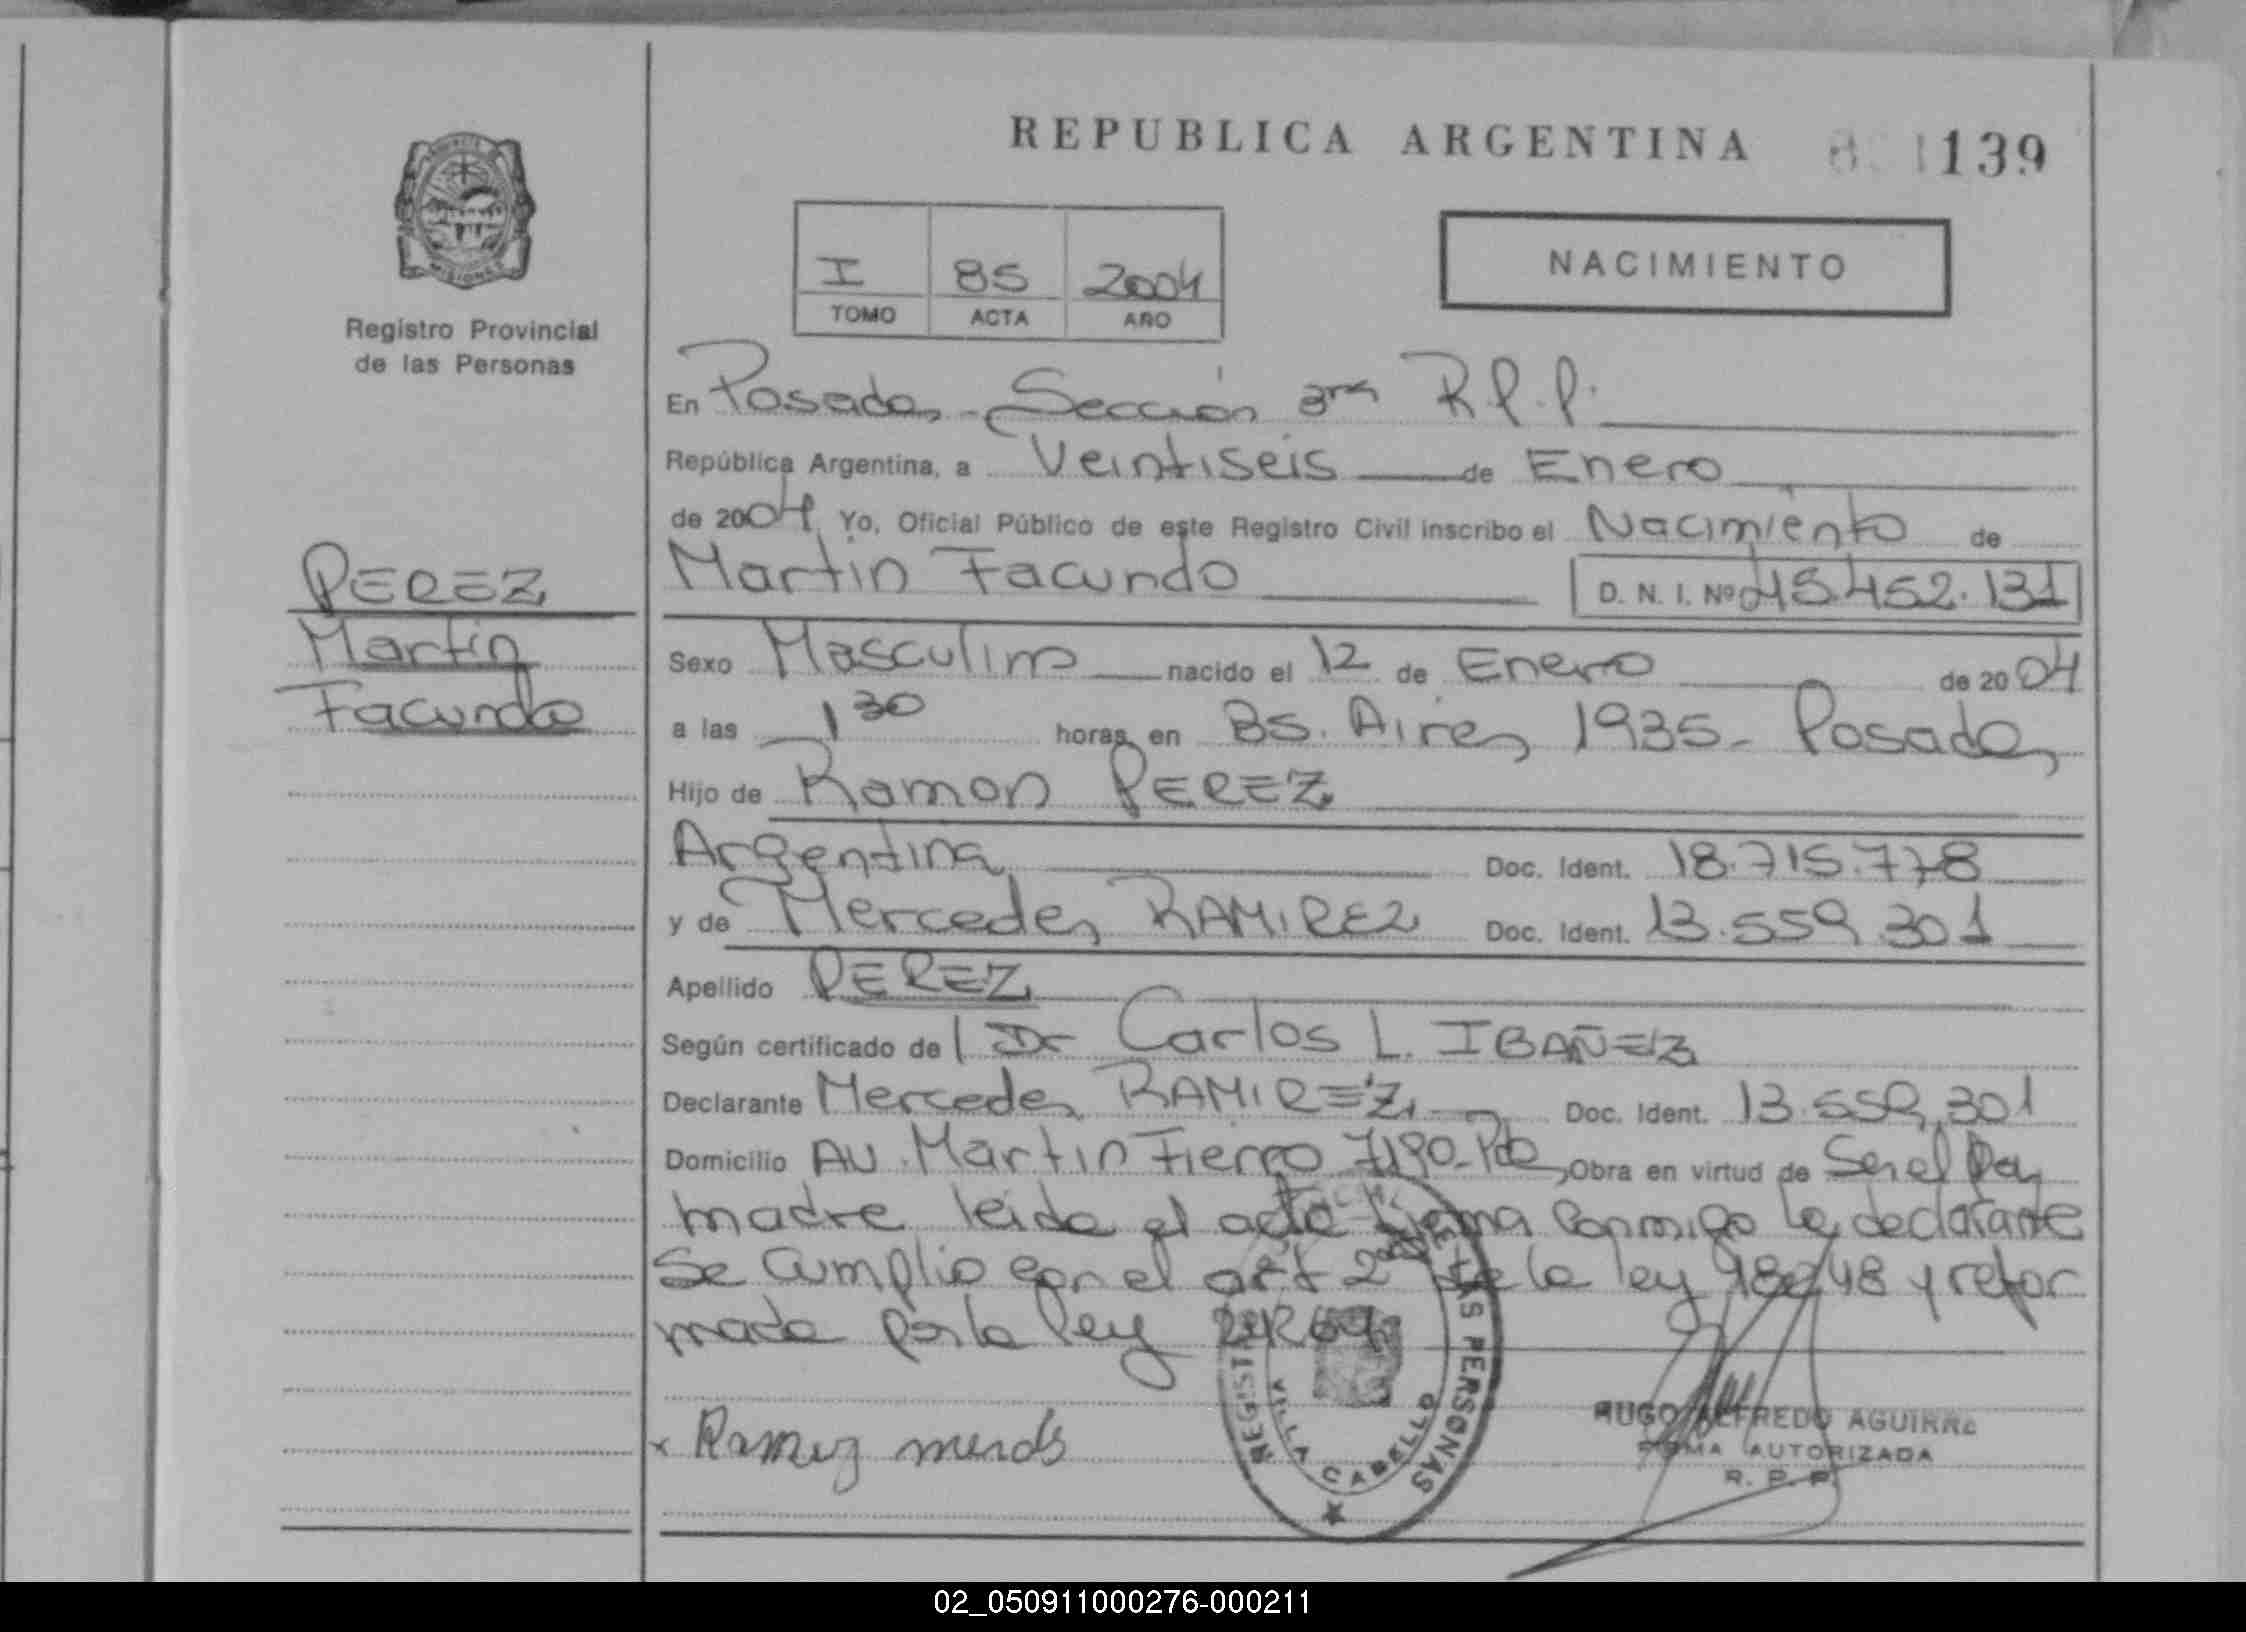 REPUBLICA ARGENTINA 139
I 85 2004
TOMO ACTA AÑO
NACIMIENTO
MISIONES
Registro Provincial
de las Personas
PEREZ
Martin
Facundo
En Posadas - Sección 3ra R.P.P.
República Argentina, a Veintiseis de Enero
de 2004 Yo, Oficial Público de este Registro Civil inscribo el Nacimiento de
Martin Facundo D. N. I. Nº 45.452.131
Sexo Masculino nacido el 12 de Enero de 2004
a las 1 30 horas en Bs. Aires 1935 - Posadas
Hijo de Ramon PEREZ
Argentina Doc. Ident. 18.715.778
y de Mercedes RAMIREZ Doc. Ident. 13.559.301
Apellido PEREZ
Según certificado de Dr Carlos L. IBAÑEZ
Declarante Mercedes RAMIREZ Doc. Ident. 13.559.301
Domicilio AV. Martin Fierro 7190 - Pdas Obra en virtud de Ser el
madre leida el acta firma conmigo la declarante
Se Cumplio con el art 2do de la ley 18248 y refor
mada por la ley 24269
x Ramirez
REGISTRO LAS PERSONAS
VILLA CABELLO
HUGO ALFREDO AGUIRRE
FIRMA AUTORIZADA
R. P. P.
02_050911000276-000211